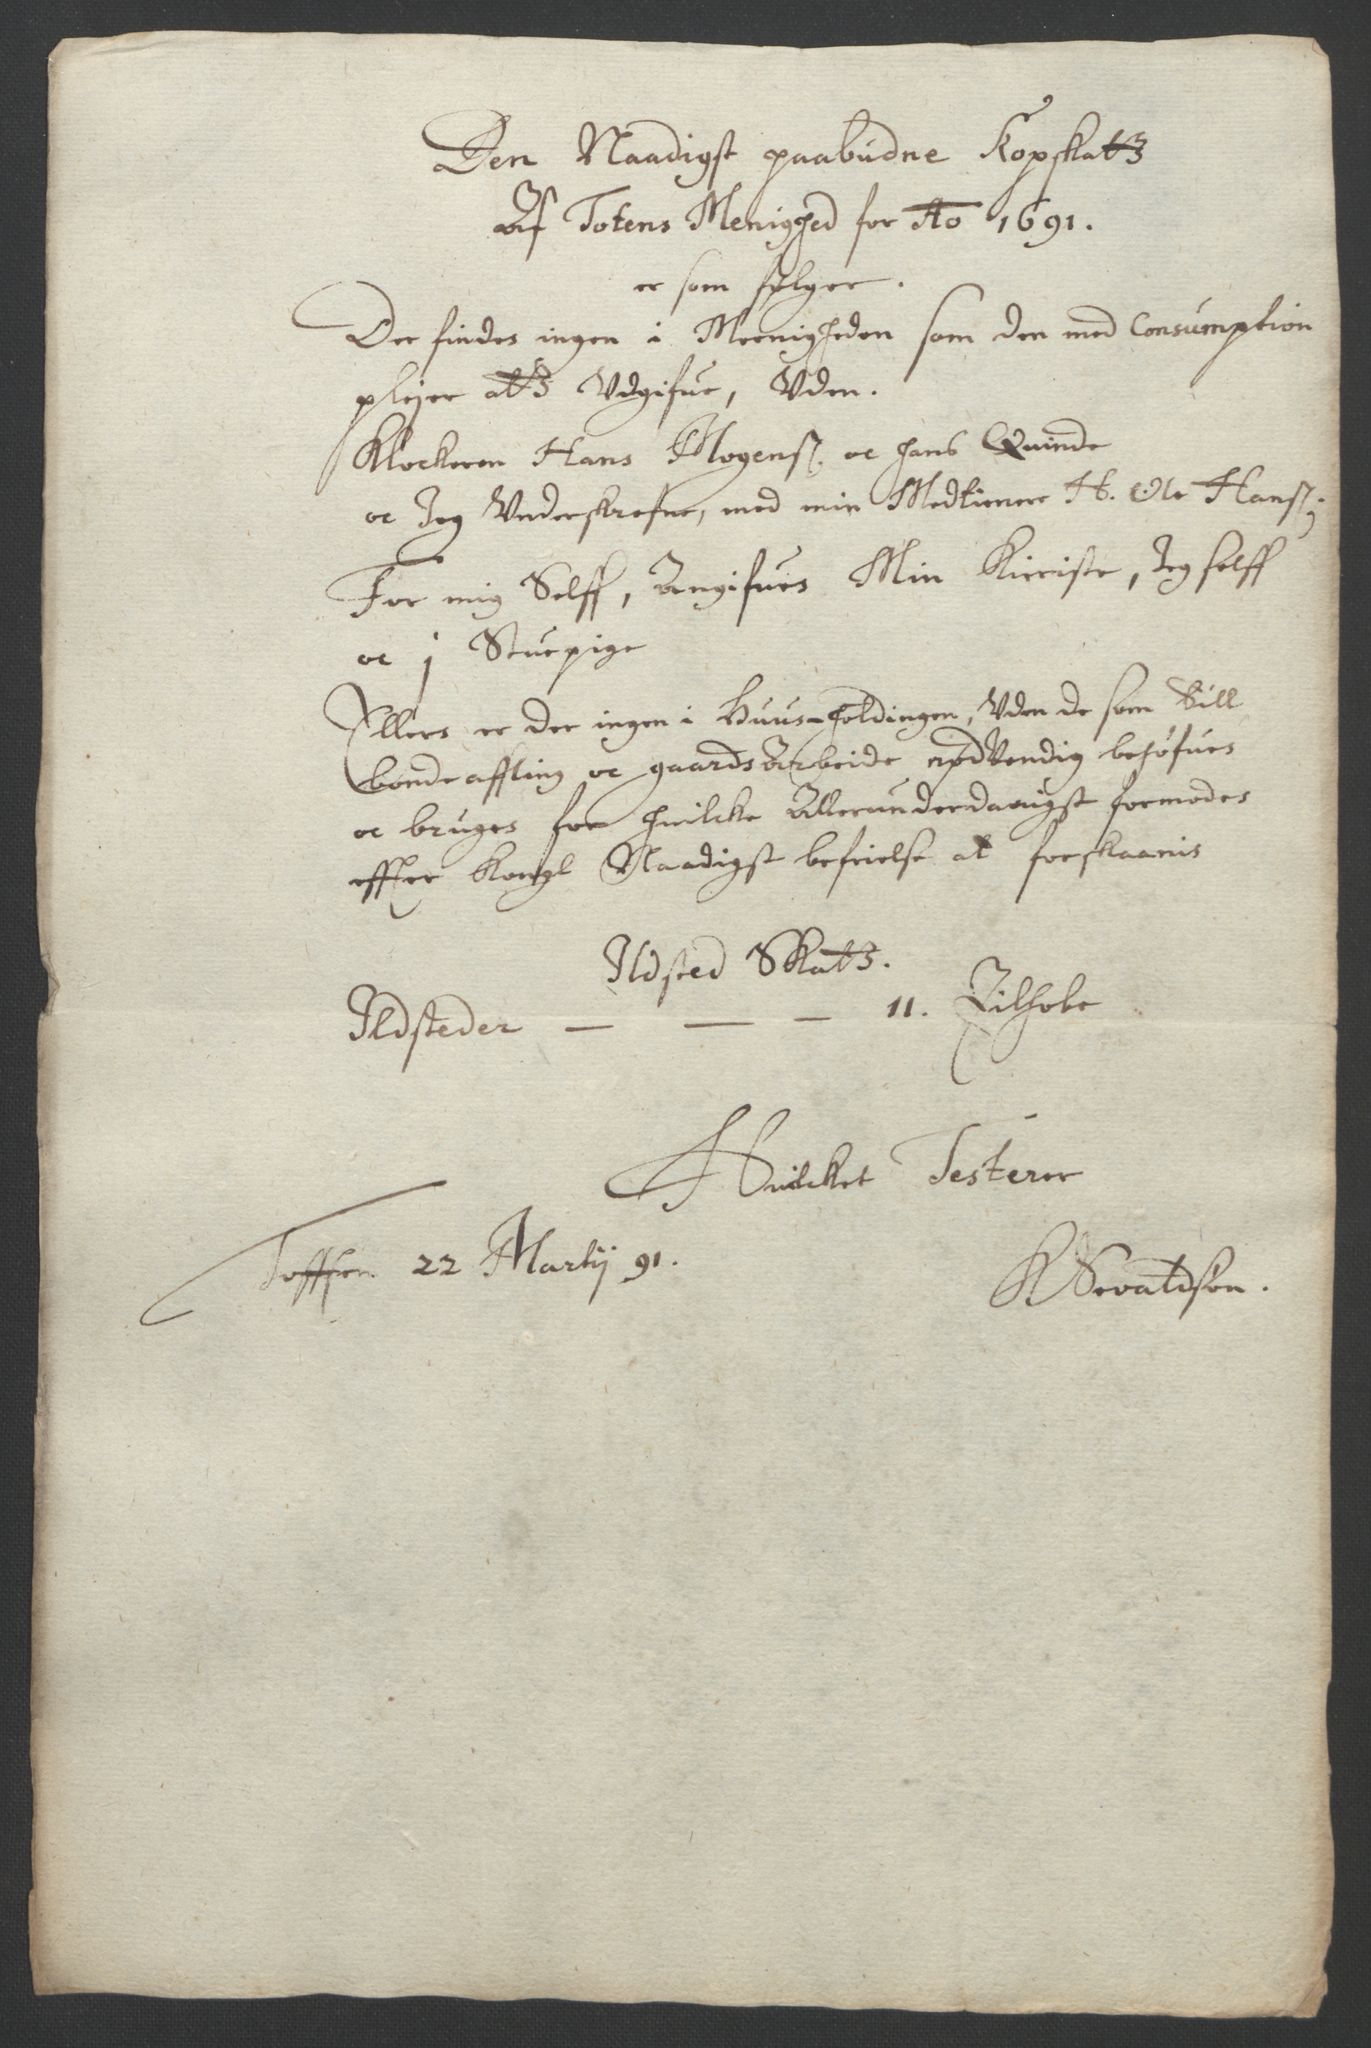 Den Naadigst paabudne Kopskatt
Af Totens Menighed for Ao 1691.
er som følger.
Der findes ingen i Meenigheden som den med Consumption
plejer att Vdgifue, Vden.
Klockeren Hans Mogens. oc hans Quinde
oc Jeg Vnderskrefne, med min Medtienere H. Ole Hans.
For mig Selff, Angifues Min Kieriste, Jeg selff
oc j Stuepige
Ellers er der ingen i Huus-holdingen, Vden de som till
bonde affling oc gaards Arbeide nødVendig behøfues
oc bruges for huilcke Allerunderdanigst formodes
effter Kongl Naadigst befrielse at forskaanis
Ildsted Skatt.
Ildsteder — — — 11.
Huilcket Testerer
Tofften 22 Martij 91.
K Sevaldson.